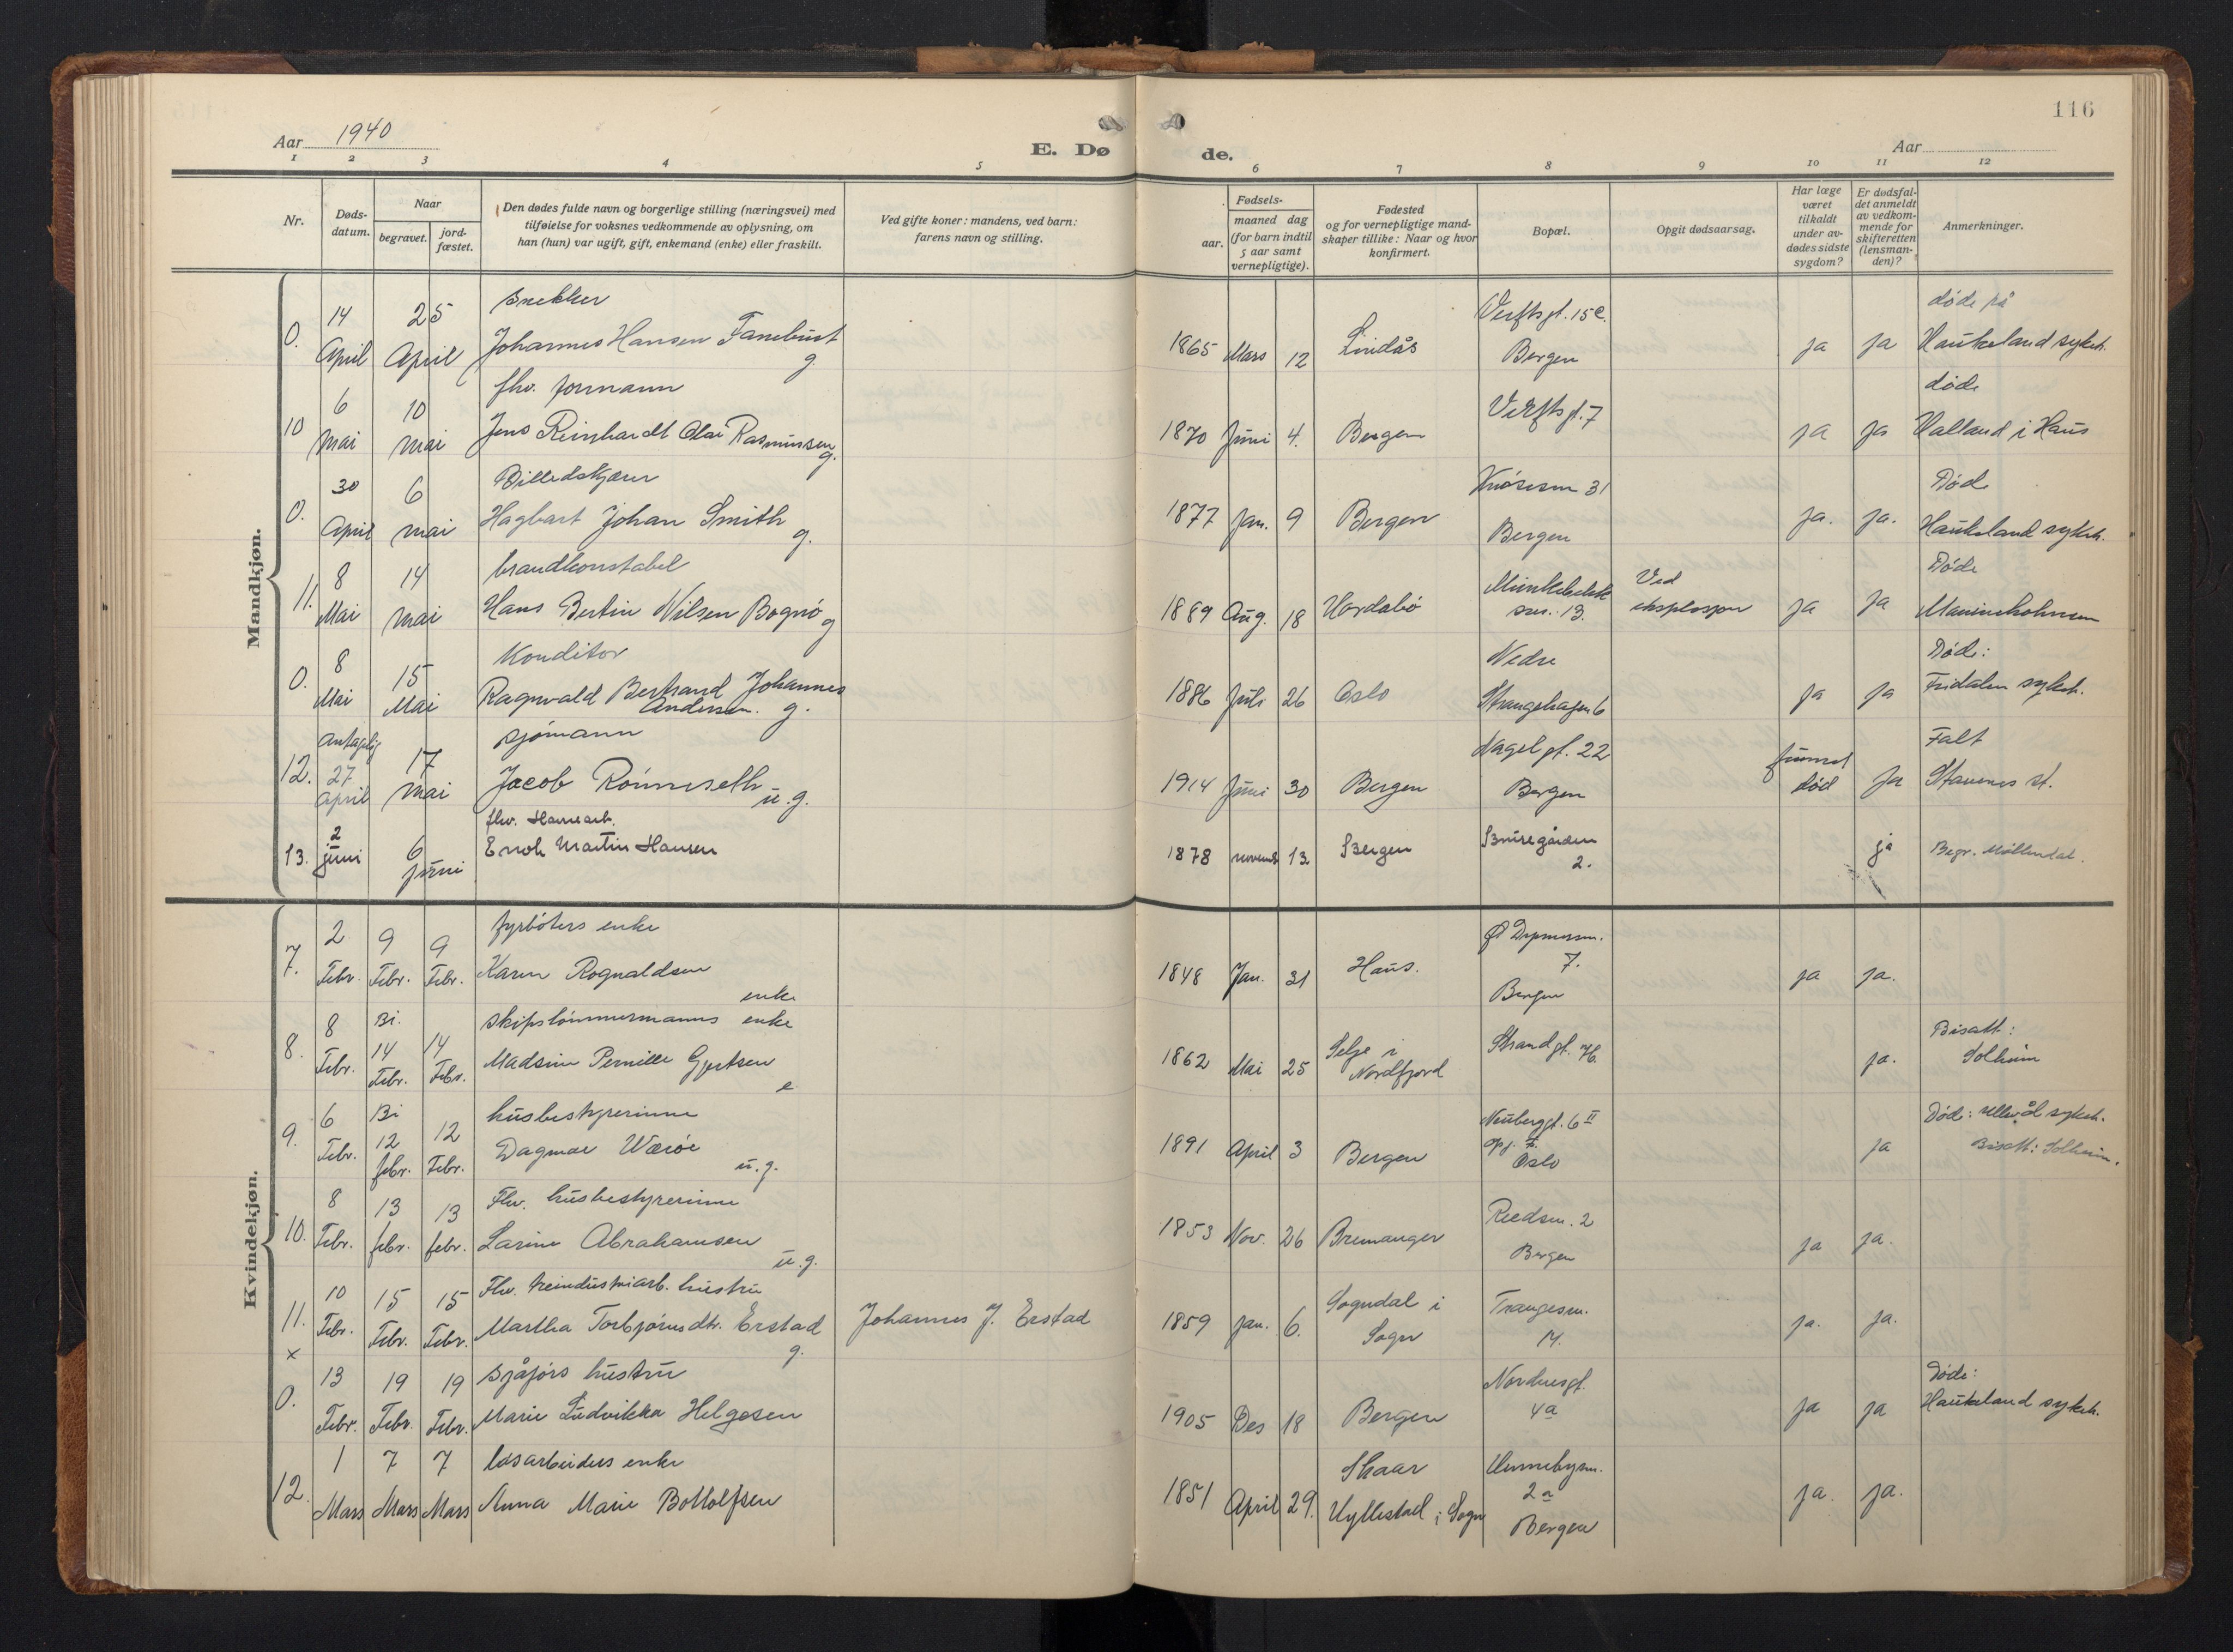 116
Aar 1940
E. Dø de.
Aar
1 2 3 4 5 6 7 8 9 10 11 12
Nr.
Døds-
datum.
Naar
begravet.
jord-
fæstet.
Den dødes fulde navn og borgerlige stilling (næringsvei) med
tilføielse for voksnes vedkommende av oplysning, om
han (hun) var ugift, gift, enkemand (enke) eller fraskilt.
Ved gifte koner: mandens, ved barn:
farens navn og stilling.
Fødsels-
aar.
maaned dag
(for barn indtil
5 aar samt
vernepligtige).
Fødested
og for vernepligtige mand-
skaper tillike: Naar og hvor
konfirmert.
Bopæl.
Opgit dødsaarsag.
Har læge
været
tilkaldt
under av-
dødes sidste
sygdom?
Er dødsfal-
det anmeldt
av vedkom-
mende for
skifteretten
(lensman-
den)?
Anmerkninger.
Mandkjøn.
snekker Verftsgt. 15 døde på
0. 14 April 25 April Johannes Hansen Fanebust g. 1865 Mars 12 Lindås Bergen ja ja Haukeland sykeh.
fhv. formann døde
10 6 Mai 10 Mai Jens Reinhardt Olai Rasmussen g. 1870 Juni 4. Bergen Verftsgt. 7 ja ja Halland i Haus
Billedskjærer 31 Død
0. 30 April 6 mai Hagbart Johan Smith g. 1877 Jan. 9 Bergen Bergen ja. ja. Haukeland sykeh.
brandkonstabel Døde
11. 8 Mai 14 Mai Hans Bertin Nilsen Bognø g 1889 Aug. 18 Hordabø 13. Ved eksplosjon ja ja Marineholmen
Konditor Nedre Døde:
0. 8 Mai 15 Mai Ragnvald Bertrand Johannes Andersen. g. 1886 Juli 26 Oslo Strangehagen 6 ja ja Fridalen sykeh.
Antagelig sjømann Nagelgt. 22 Falt
12. 27 April 17 Mai Jacob Rönneseth u.g. 1914 Juni 30 Bergen Bergen funnet død ja Stavenes st.
fhv. Havnearb.
13. 2 juni 6 juni Enok Martin Hansen 1878 novemb 13 Bergen 2. ja Begr. Møllendal.
Kvindekjøn.
fyrbøters enke
7. 2 Febr. 9 Febr. 9 Febr. Karen Rognaldsen enke 1848 Jan. 31 Haus. 7. Bergen ja ja.
skipstømmermanns enke Bisatt:
8. 8 Febr. Bi. 14 Febr. 14 Febr. Madsine Pernille Gjertsen e 1862 Mai 25 Selje i Nordfjord Strandgt. ja. Solheim
husbestyrerinne Neubergt. 6 II Død: Ullevål sykeh.
9. 6 Febr. Bi 12 febr. 12 Febr. Dagmar Wærøe u.g. 1891 April 3 Bergen Oslo ja Bisatt: Solheim.
Fhv. husbestyrerinne
10. 8 Febr. 13 febr. 13 febr. Larine Abrahamsen u.g. 1853 Nov. 26 Bremanger Reedsm. 2 Bergen ja ja.
Fhv. treindustriarb. hustru
11. 10 Febr. 15 Febr. 15 Febr. Martha Torbjørnsdtr. Erstad g. Johannes J. Erstad 1859 jan. 6. Sogndal i Sogn Trangesm. 14. ja. ja.
x
sjåførs hustru Nordnesgt. Døde:
0. 13 Febr. 19 Febr. 19 Febr. Marie Ludvikka Helgesen 1905 Des 18 Bergen 4a ja ja Haukeland sykeh.
løsarbeiders enke
12. 1 Mars 7 Mars 7 Mars Anna Marie Bottolfsen 1851 April 29. Skaar Hyllestad i Sogn 2a Bergen ja. ja.